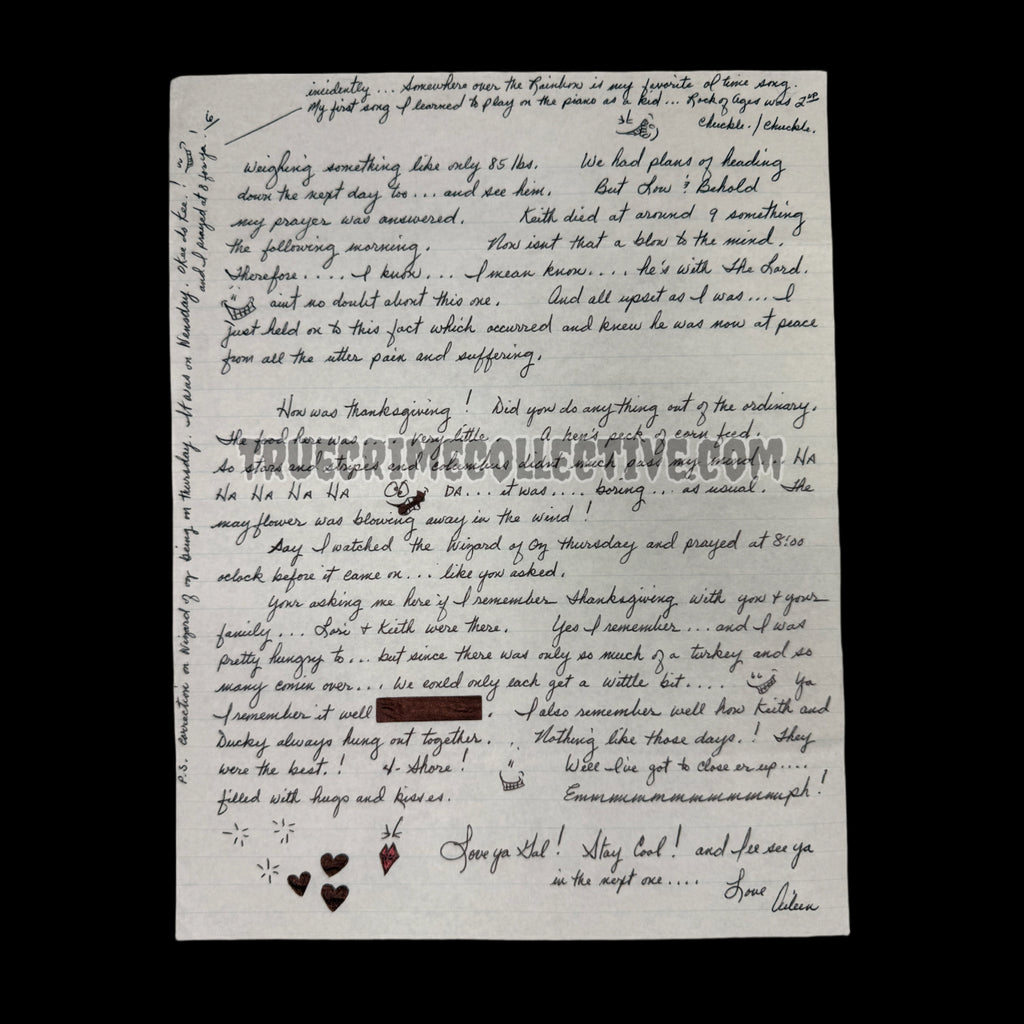 incidently... Somewhere over the Rainbow is my favorite ol time song.
My first song I learned to play on the piano as a kid... Rock of Ages was 2ND
chuckle./chuckle.
Weighing something like only 85 lbs. We had plans of heading
down the next day too... and see him. But Low & Behold
my prayer was answered. Keith died at around 9 something
the following morning. Now isnt that a blow to the mind.
Therefore.... I know... I mean know.... he's with The Lord.
aint no doubt about this one. And all upset as I was... I
just held on to this fact which occurred and knew he was now at peace
from all the utter pain and suffering.
How was thanksgiving! Did you do anything out of the ordinary.
The food here was.... very little. A hen's peck of corn feed.
So stars and stripes and columbus didnt much pass my mind... HA
HA HA HA HA DA.... it was.... boring... as usual. The
mayflower was blowing away in the wind!
Say I watched the Wizard of Oz thursday and prayed at 8:00
oclock before it came on... like you asked.
Your asking me here if I remember thanksgiving with you & your
family... Lori & Keith were there. Yes I remember... and I was
pretty hungry to... but since there was only so much of a turkey and so
many comin over... We could only each get a wittle bit.... Ya
I remember it well . I also remember well how Keith and
Ducky always hung out together... Nothing like those days.! They
were the best.! 4-Shore! Well I've got to close er up....
filled with hugs and kisses. Emmmmmmmmmmmuph!
Love ya Gal! Stay Cool! and I'ee see ya
in the next one....
Love
Aileen
P.S. correction on Wizard of oz being on thursday. It was on Wensday. Okee do kee.!
and I prayed at 8 for ya.
TRUECRIMECOLLECTIVE.COM